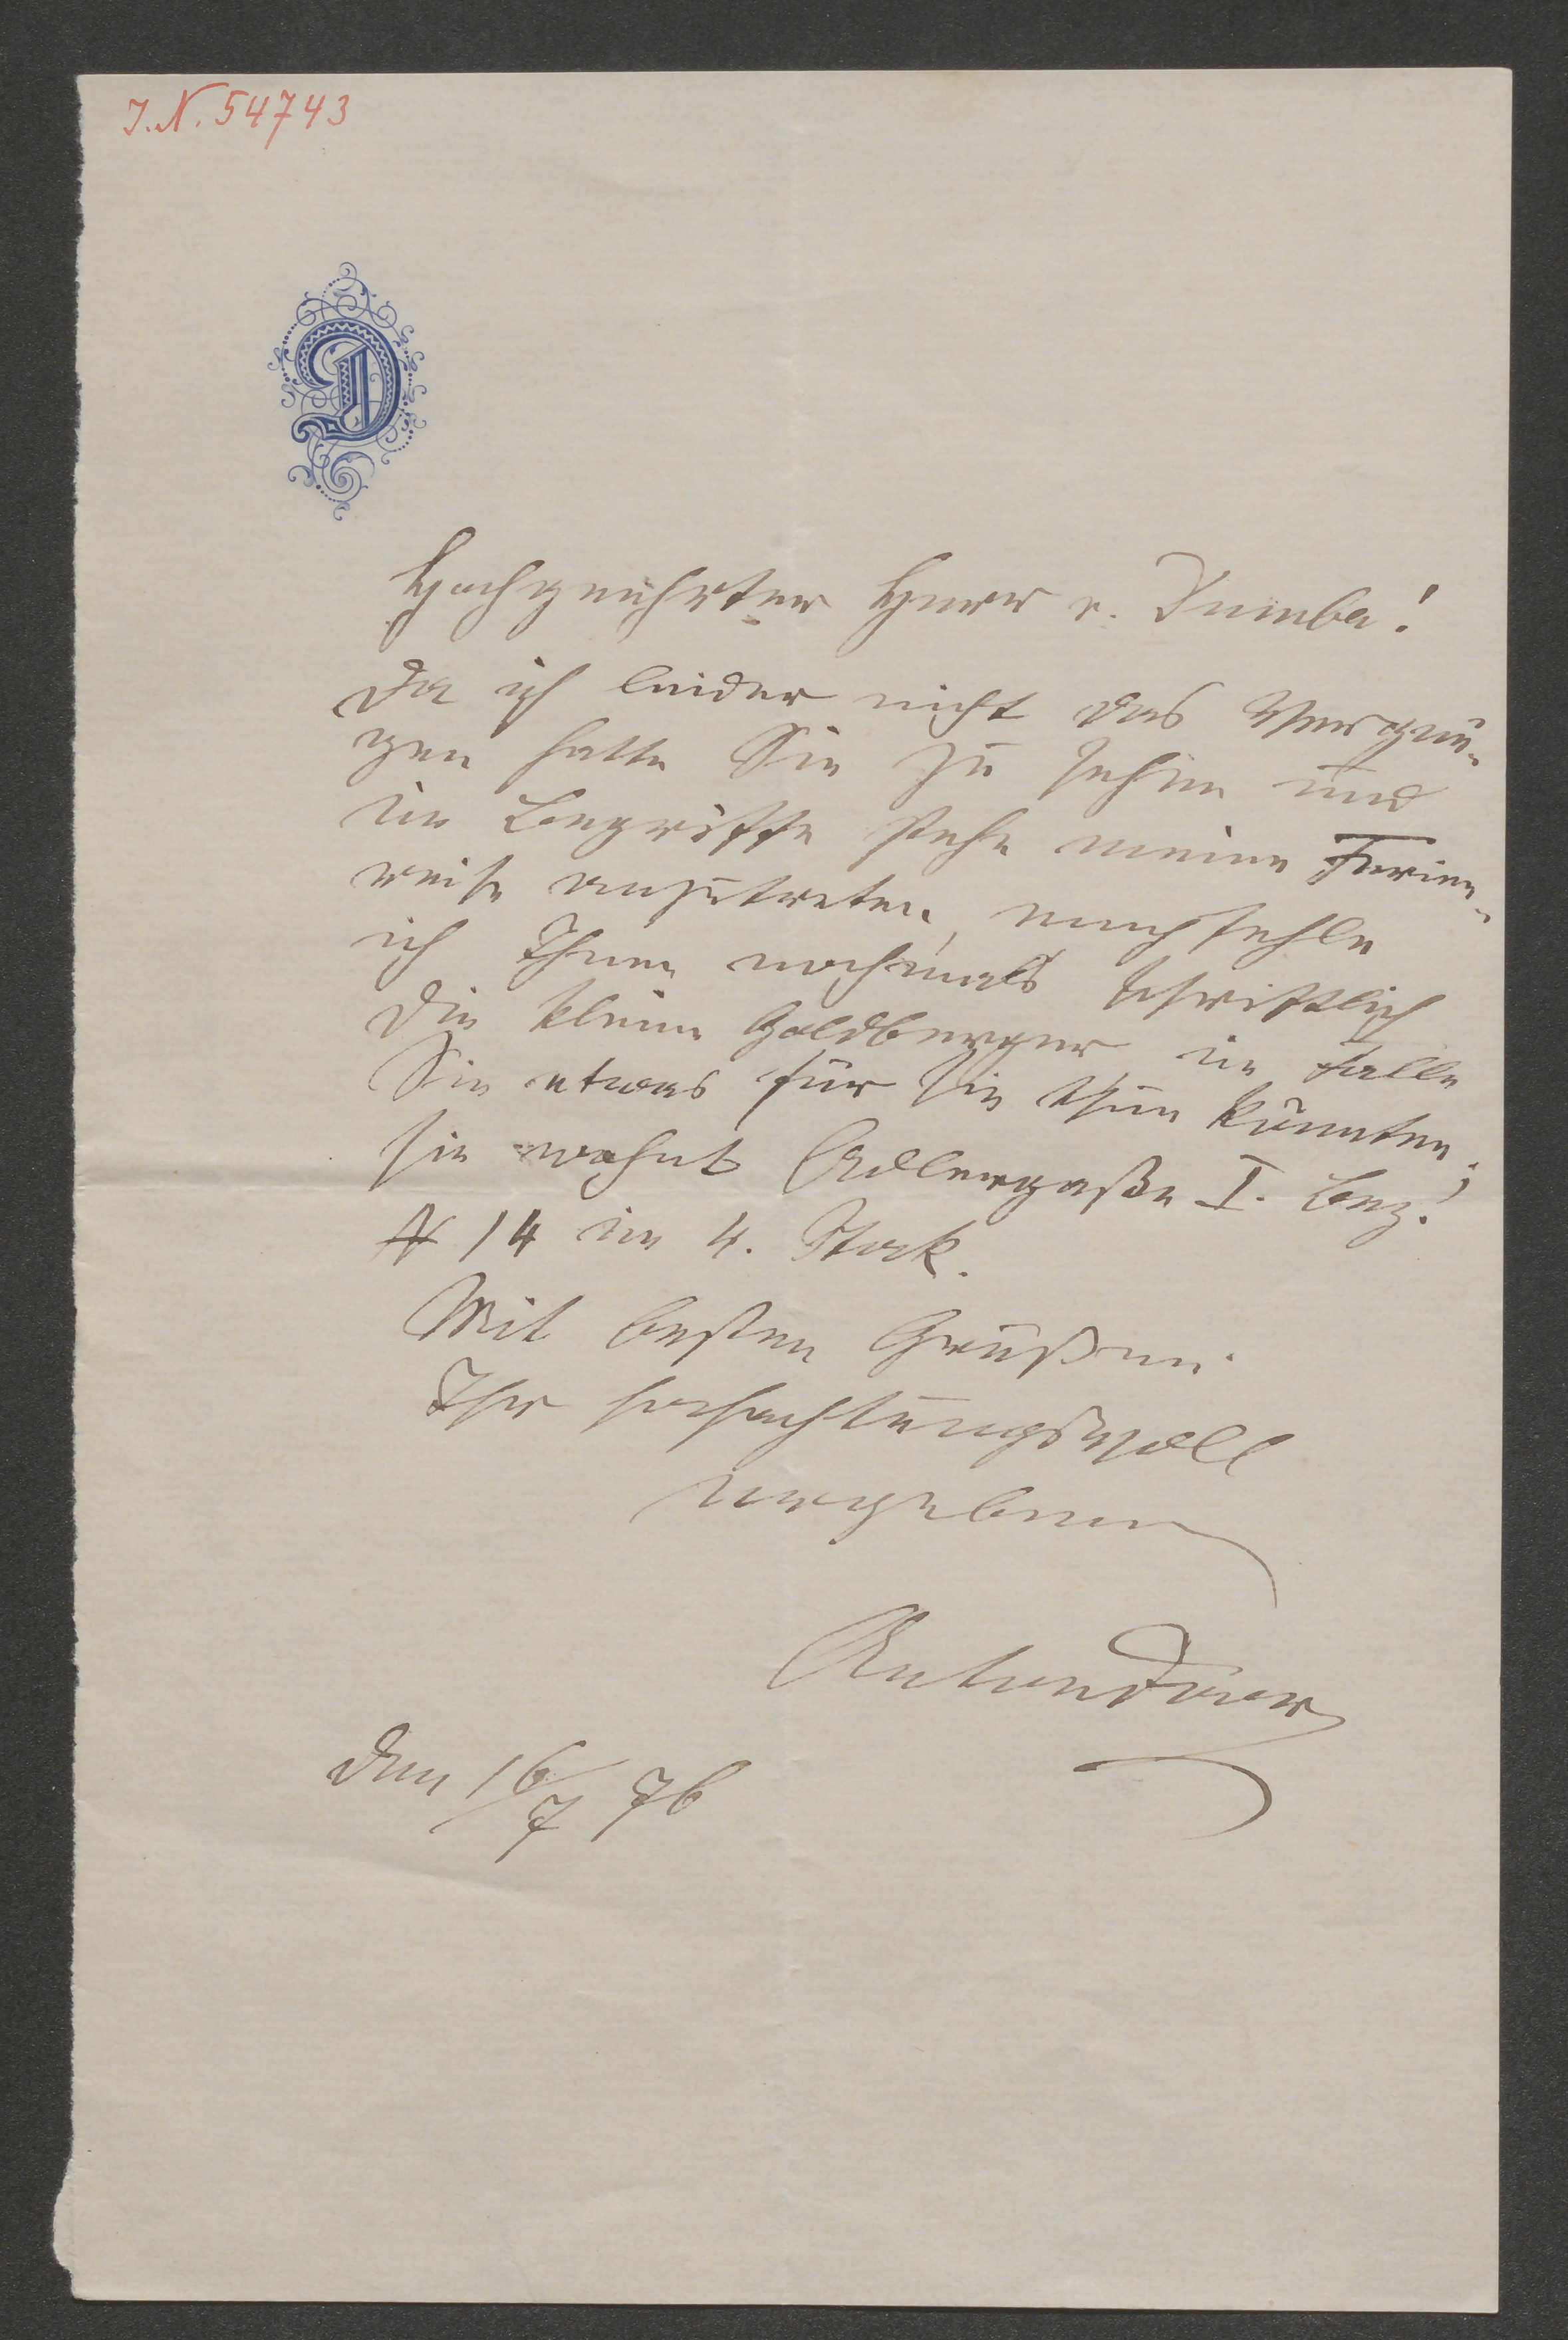 I.N. 54743
D
Hochgeehrter Herr v. Dumba!
Da ich leider nicht das Vergnü-
gen hatte Sie zu sehen und
im Begriffe stehe meine Ferien-
reise anzutreten, empfehle
ich Ihnen nochmals schriftlich
die kleine Goldberger im Falle
Sie etwas für sie thun könnten;
sie wohnt Adlergaße I. Bez.
N 14 im 4. Stock.
Mit besten Grüßen
Ihr hochachtungsvoll
ergebener
Anton Door
den 16/7 76